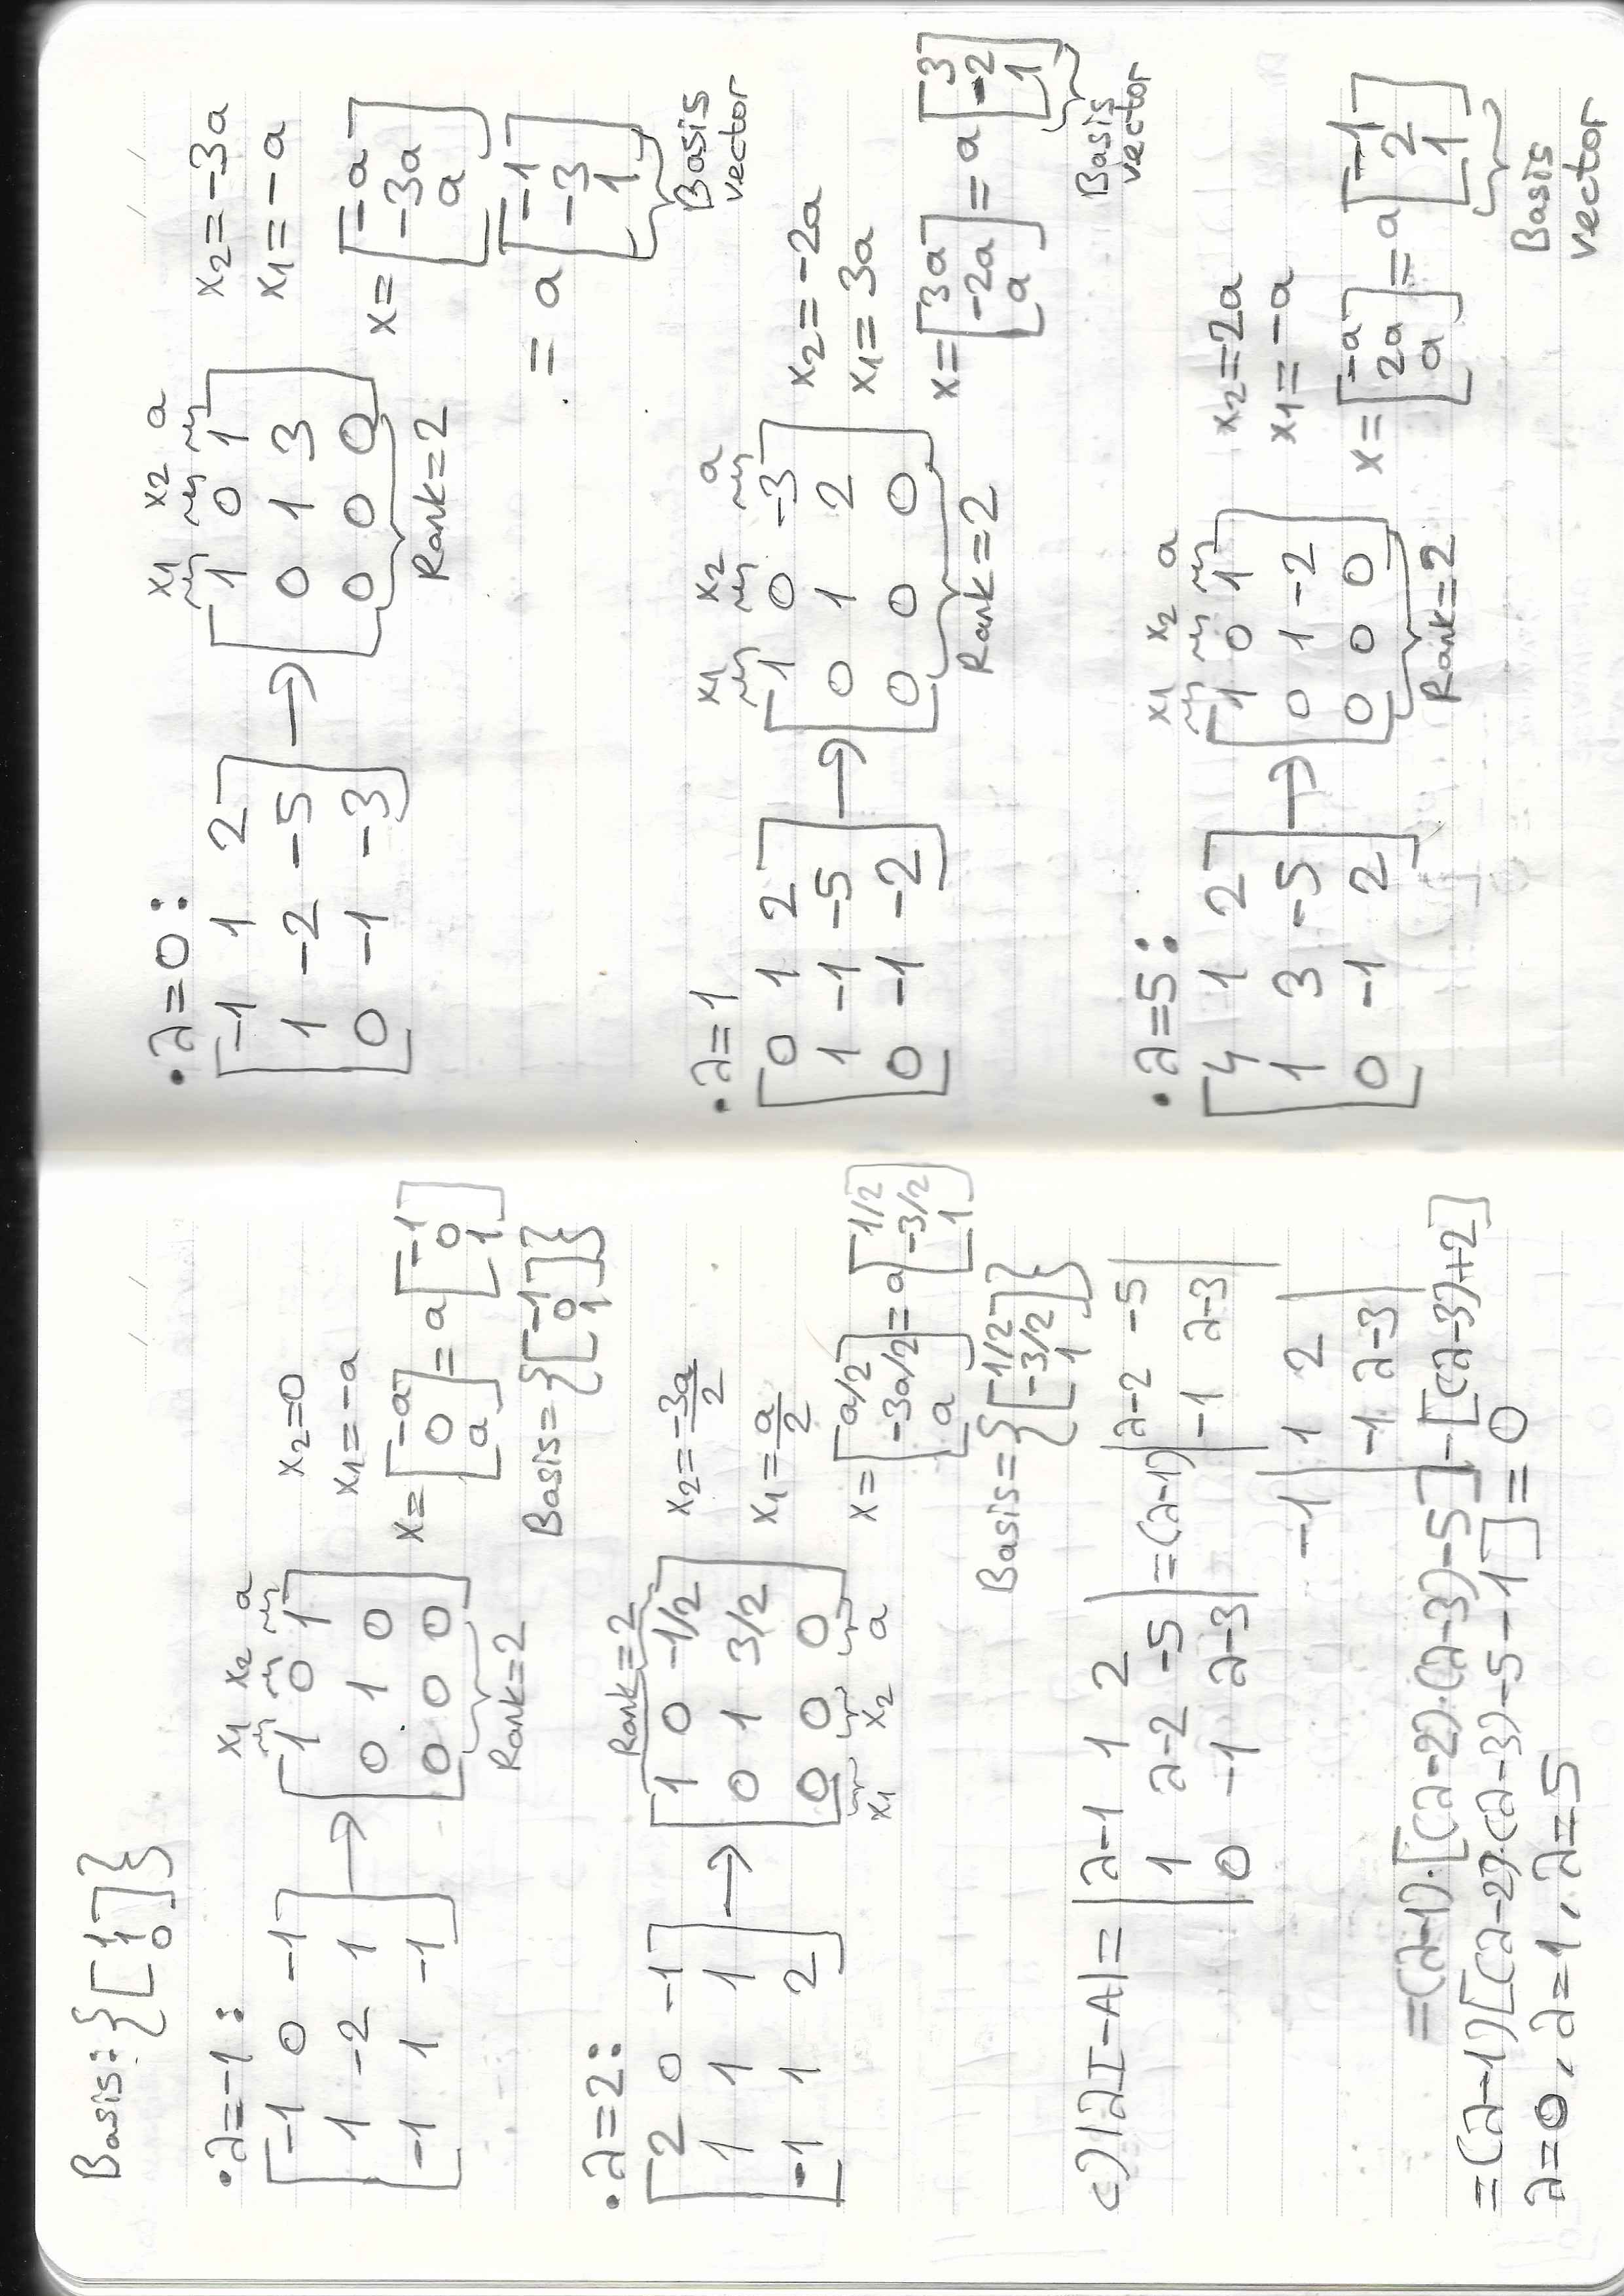 Basis: {[1
1
0]}
• λ=-1:
x1 x2 a
[-1 0 -1
1 -2 1
-1 1 -1]
→
[1 0 1
0 1 0
0 0 0]
Rank=2
x2=0
x1=-a
x=[-a
0
a]
= a[-1
0
1]
Basis={[-1
0
1]}
• λ=2:
Rank=2
[2 0 -1
1 1 1
-1 1 2]
→
[1 0 -1/2
0 1 3/2
0 0 0]
x1 x2 a
x2=-3a/2
x1=a/2
x=[a/2
-3a/2
a]
= a[1/2
-3/2
1]
Basis={[1/2
-3/2
1]}
c) |λI-A|=
|λ-1 1 2
1 λ-2 -5
0 -1 λ-3|
=(λ-1)
|λ-2 -5
-1 λ-3|
-1
|1 2
-1 λ-3|
=(λ-1)·[(λ-2)·(λ-3)-5]-[(λ-3)+2]
=(λ-1)[(λ-2)·(λ-3)-5-1]=0
λ=0, λ=1, λ=5
/ /
• λ=0:
x1 x2 a
[-1 1 2
1 -2 -5
0 -1 -3]
→
[1 0 1
0 1 3
0 0 0]
Rank=2
x2=-3a
x1=-a
x=[-a
-3a
a]
= a[-1
-3
1]
Basis
vector
• λ=1
x1 x2 a
[0 1 2
1 -1 -5
0 -1 -2]
→
[1 0 -3
0 1 2
0 0 0]
Rank=2
x2=-2a
x1=3a
x=[3a
-2a
a]
= a[3
-2
1]
Basis
vector
• λ=5:
x1 x2 a
[4 1 2
1 3 -5
0 -1 2]
→
[1 0 1
0 1 -2
0 0 0]
Rank=2
x2=2a
x1=-a
x=[-a
2a
a]
= a[-1
2
1]
Basis
vector
/ /